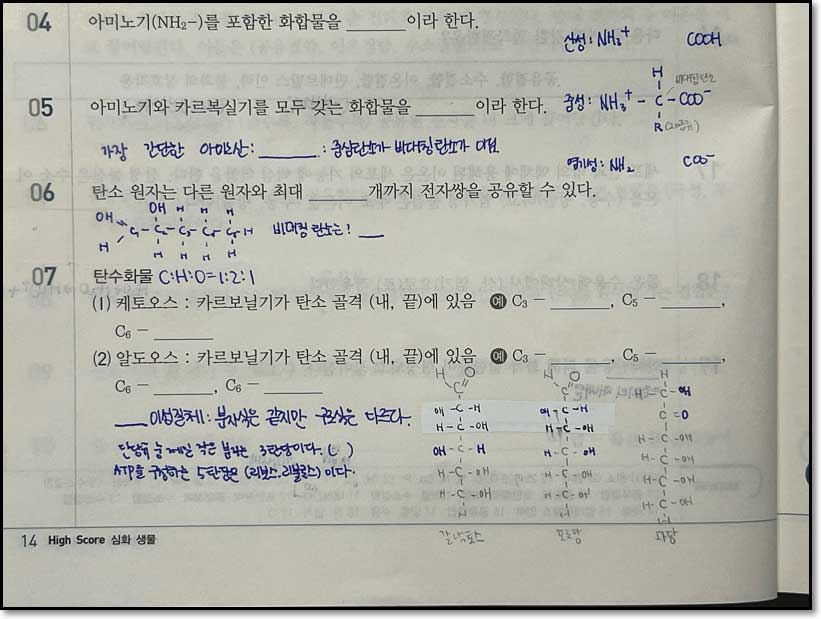 04 아미노기(NH₂-)를 포함한 화합물을 ______이라 한다.
산성: NH₃⁺ COOH
05 아미노기와 카르복실기를 모두 갖는 화합물을 ______ 이라 한다.
중성: NH₃⁺ - C - COO⁻
H
비대칭탄소
R (20종류)
가장 간단한 아미노산: ______ : 중심탄소가 비대칭탄소가 아님
염기성: NH₂ COO⁻
06 탄소 원자는 다른 원자와 최대 ______ 개까지 전자쌍을 공유할 수 있다.
비대칭 탄소는? ___
07 탄수화물 C:H:O=1:2:1
(1) 케토오스 : 카르보닐기가 탄소 골격 (내, 끝)에 있음 예 C₃ - ______, C₅ - ______,
C₆ - ______
(2) 알도오스 : 카르보닐기가 탄소 골격 (내, 끝)에 있음 예 C₃ - ______, C₅ - ______,
C₆ - ______, C₆ - ______
____ 이성질체: 분자식은 같지만 구조식은 다르다.
단당류 중 제일 작은 분자는 3탄당이다. ( )
ATP를 구성하는 5탄당은 (리보스, 리불로스) 이다.
갈락토스 포도당 과당
14 High Score 심화 생물